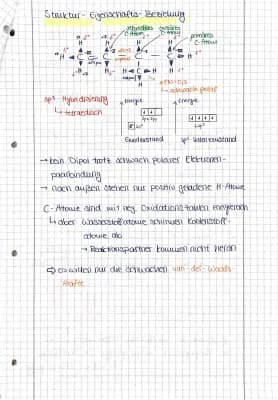 Struktur - Eigenschafts - Beziehung
sekundäres C-Atom
tertiäres C-Atom
primäres C-Atom
sp³-Hybridisierung
↳ tetraedisch
Energie
Energie
Grundzustand
sp³-Valenzzustand
→ kein Dipol trotz schwach polarer Elektronen-
paarbindung
→ nach außen stehen nur positiv geladene H-Atome
C-Atome sind mit neg. Oxidationszahlen energiereich
↳ aber Wasserstoffatome schirmen Kohlenstoff-
atome ab
→ Reaktionspartner kommen nicht heran
⇨ es wirken nur die schwachen van-der-Waals-
Kräfte